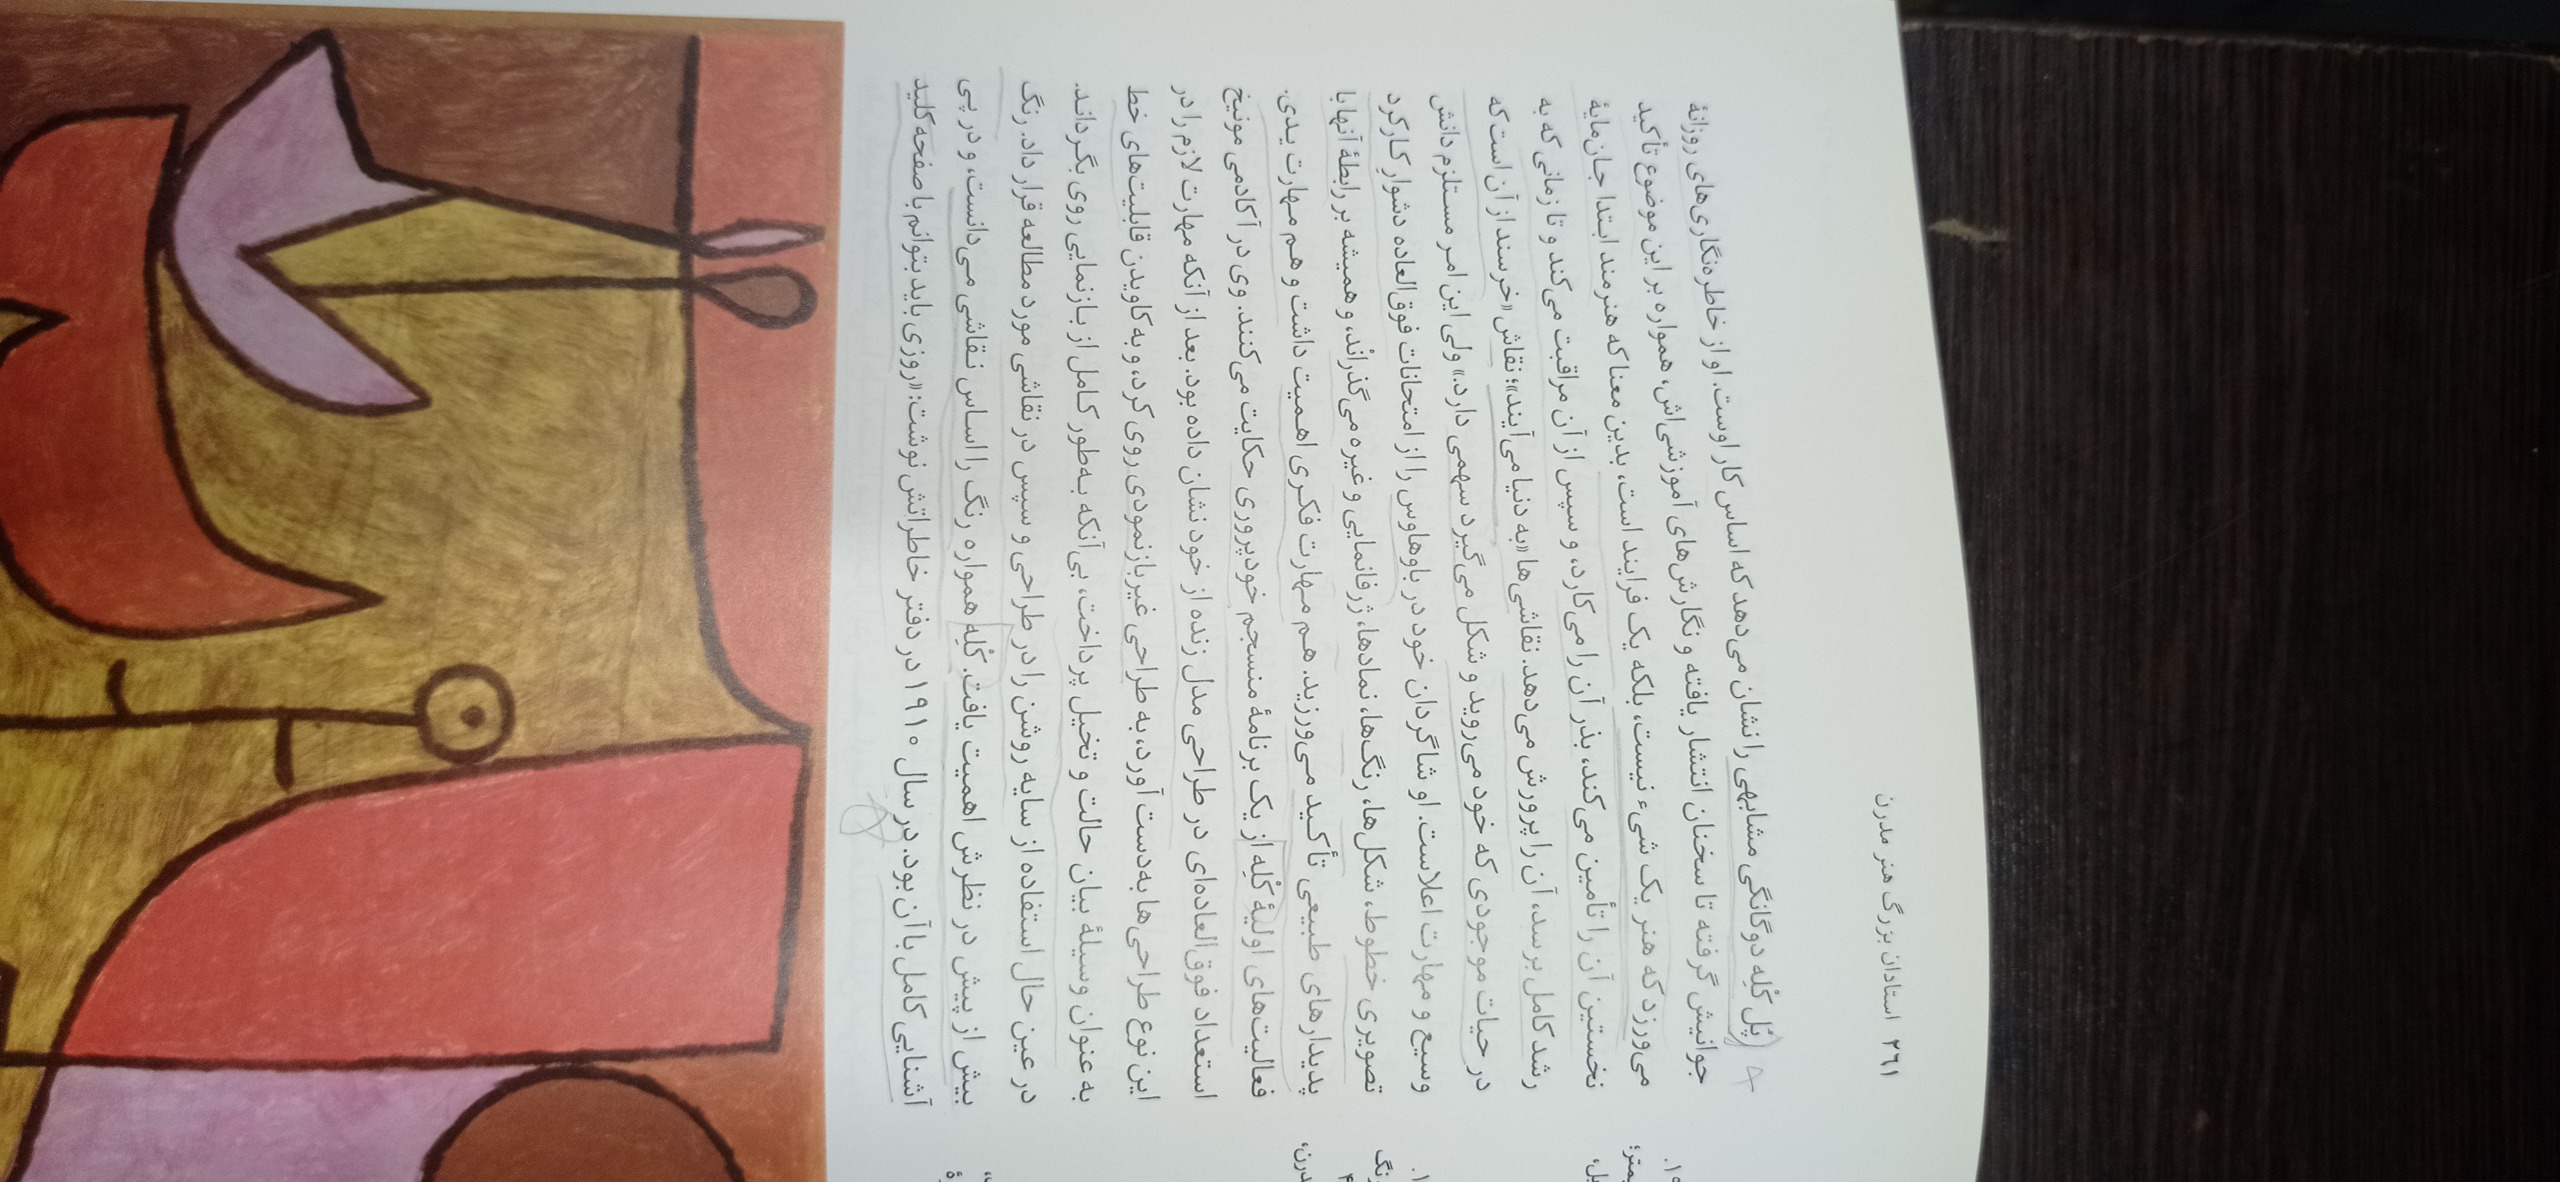 ۲۶۱ استادان بزرگ هنر مدرن
پُل کْلِه دوگانگی مشابهی را نشان می‌دهد که اساس کار اوست. او از خاطره‌نگاری‌های روزانهٔ
جوانیش گرفته تا سخنان انتشار یافته و نگارش‌های آموزشی‌اش، همواره بر این موضوع تأکید
می‌ورزد که هنر یک شیء نیست، بلکه یک فرایند است، بدین معنا که هنرمند ابتدا جان‌مایهٔ
نخستین آن را تأمین می‌کند، بذر آن را می‌کارد، و سپس از آن مراقبت می‌کند و تا زمانی که به
رشد کامل برسد، آن را پرورش می‌دهد. نقاشی‌ها «به دنیا می‌آیند»؛ نقاش «خرسند از آن است که
در حیات موجودی که خود می‌روید و شکل می‌گیرد سهمی دارد.» ولی این امر مستلزم دانش
وسیع و مهارت اعلاست. او شاگردان خود در باوهاوس را از امتحانات فوق‌العاده دشوارِ کارکرد
تصویری خطوط، شکل‌ها، رنگ‌ها، نمادها، ژرفانمایی و غیره می‌گذراْند، و همیشه بر رابطهٔ آنها با
پدیدارهای طبیعی تأکید می‌ورزید. هم مهارت فکری اهمیت داشت و هم مهارت یدی.
فعالیت‌های اولیهٔ کْلِه از یک برنامهٔ منسجم خودپروری حکایت می‌کنند. وی در آکادمی مونیخ
استعداد فوق‌العاده‌ای در طراحی مدل زنده از خود نشان داده بود. بعد از آنکه مهارت لازم را در
این نوع طراحی‌ها به‌دست آورد، به طراحی غیربازنمودی روی کرد، و به کاویدن قابلیت‌های خط
به عنوان وسیلهٔ بیان حالت و تخیل پرداخت، بی‌آنکه به‌طور کامل از بازنمایی روی بگرداند.
در عین حال استفاده از سایه روشن را در طراحی و سپس در نقاشی مورد مطالعه قرار داد. رنگ
بیش از پیش در نظرش اهمیت یافت. کْلِه همواره رنگ را اساس نقاشی می‌دانست، و در پی
آشنایی کامل با آن بود. در سال ۱۹۱۰ در دفتر خاطراتش نوشت: «روزی باید بتوانم با صفحه کلید